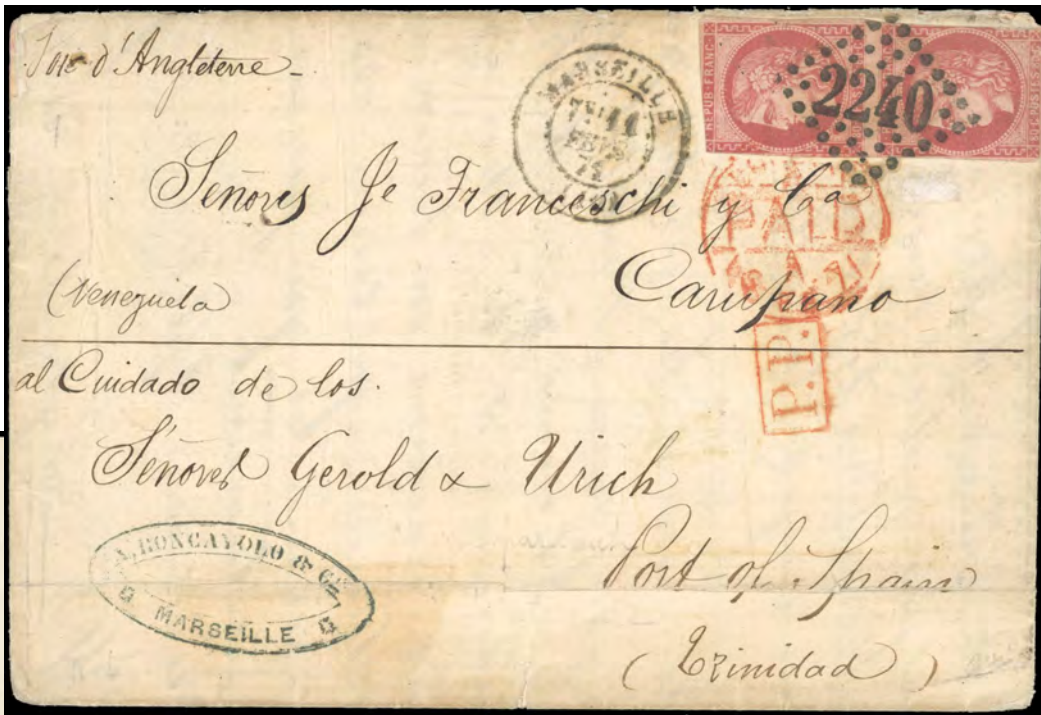 Voie d'Angleterre -
MARSEILLE
FEVR
REPUB. FRANC.
2240
PAID
Señores Je Franceschi y Ca
(Venezuela
Carupano
P.P.
al Cuidado de los.
Señores Gerold & Urich
Port of Spain
(Trinidad)
RONCAYOLO & CIE
MARSEILLE